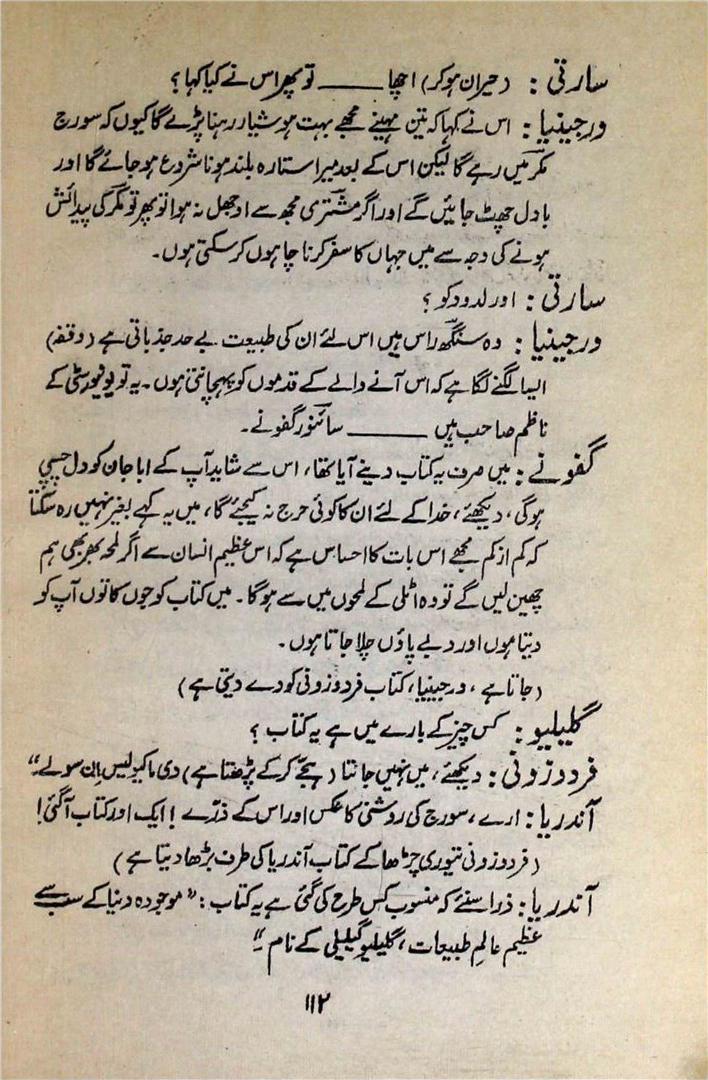 سارتی : (حیران ہوکر) اچھا ــــــــ تو پھر اس نے کیا کہا؟
ورجینیا : اس نے کہا کہ تین مہینے مجھے بہت ہوشیار رہنا پڑے گا کیوں کہ سورج
مکر میں رہے گا لیکن اس کے بعد میرا ستارہ بلند ہونا شروع ہو جائے گا اور
بادل چھٹ جائیں گے اور اگر مشتری مجھ سے اوجھل نہ ہوا تو پھر تو مکر کی پیدائش
ہونے کی وجہ سے میں جہاں کا سفر کرنا چاہوں کرسکتی ہوں۔
سارتی : اور لدودکو؟
ورجینیا : وہ سنگھ راس ہیں اس لئے ان کی طبیعت بے حد جذباتی ہے (وقفہ)
ایسا لگنے لگا ہے کہ اس آنے والے کے قدموں کو پہچانتی ہوں۔ یہ تو یونیورسٹی کے
ناظم صاحب ہیں ــــــــ سائنور گفونے۔
گفونے : میں صرف یہ کتاب دینے آیا تھا، اس سے شاید آپ کے ابا جان کو دل چسپی
ہوگی، دیکھئے، خدا کے لئے ان کا کوئی حرج نہ کیجئے گا، میں یہ کہے بغیر نہیں رہ سکتا
کہ کم از کم مجھے اس بات کا احساس ہے کہ اس عظیم انسان سے اگر لمحہ بھر بھی ہم
چھین لیں گے تو وہ اٹلی کے لمحوں میں سے ہوگا۔ میں کتاب کو جوں کا توں آپ کو
دیتا ہوں اور دبے پاؤں چلا جاتا ہوں۔
(جاتا ہے، ورجینیا، کتاب فردوزونی کو دے دیتی ہے)
گلیلیو : کس چیز کے بارے میں ہے یہ کتاب؟
فردوزونی : دیکھئے، میں نہیں جانتا (ہجے کرکے پڑھتا ہے) دی ماکیولیس ان سولے"
آندریا : ارے، سورج کی روشنی کا عکس اور اس کے ذرّے! ایک اور کتاب آگئی!
(فردوزونی تیوری چڑھا کے کتاب آندریا کی طرف بڑھا دیتا ہے)
آندریا : ذرا سنئے کہ منسوب کس طرح کی گئی ہے یہ کتاب : "موجودہ دنیا کے سب سے
عظیم عالمِ طبیعات، گلیلیو گیلیلی کے نام۔"
۱۱۲